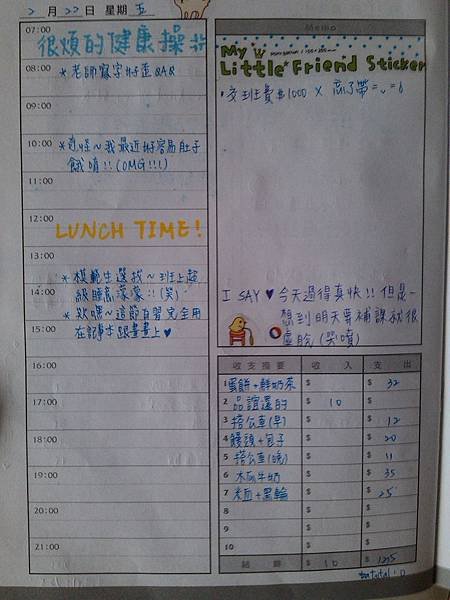 2 月 22 日 星期 五
07:00
很煩的健康操
08:00
＊老師寫字好歪QAQ
09:00
10:00
＊奇怪~我最近好容易肚子
餓唷!!(OMG!!!)
11:00
12:00
LUNCH TIME!
13:00
＊模範生選拔~班上超
14:00
級腫高濛濛!!(笑)
＊欸嘿~這節自習完全用
15:00
在記事本跟畫畫上♥
16:00
17:00
18:00
19:00
20:00
21:00
Memo
My
Little Friend Sticker
・交班費$1000 X 忘了帶=u=6
I SAY ♥ 今天過得真快!! 但是一
想到明天要補課就很
虛脫(笑噴)
收支摘要 收 入 支 出
1 蛋餅+鮮奶茶 $ $ 32
2 品誼還的 $ 10 $
3 搭公車(早) $ $ 12
4 饅頭+包子 $ $ 20
5 搭公車(晚) $ $ 11
6 木瓜牛奶 $ $ 35
7 米血+黑輪 $ $ 25
8 $ $
9 $ $
10 $ $
結 餘 $ 10 $